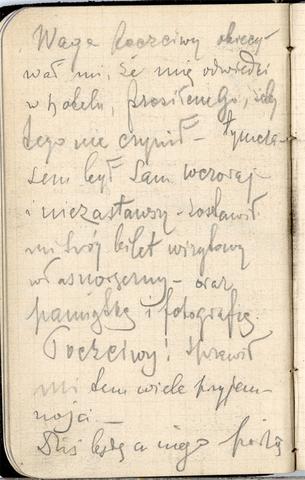 Waga poczciwy obiecy-
wał mi, że mię odwiedzi
w hotelu, prosiłem Go, żeby
tego nie czynił - tymcza-
sem był sam wczoraj
i niezastawszy - zostawił
mi swój bilet wizytowy
własnoręczny - oraz
pamiątkę i fotografię.
Poczciwy! Sprawił
mi tem wiele przyjem-
ności. -
Dziś będę u niego